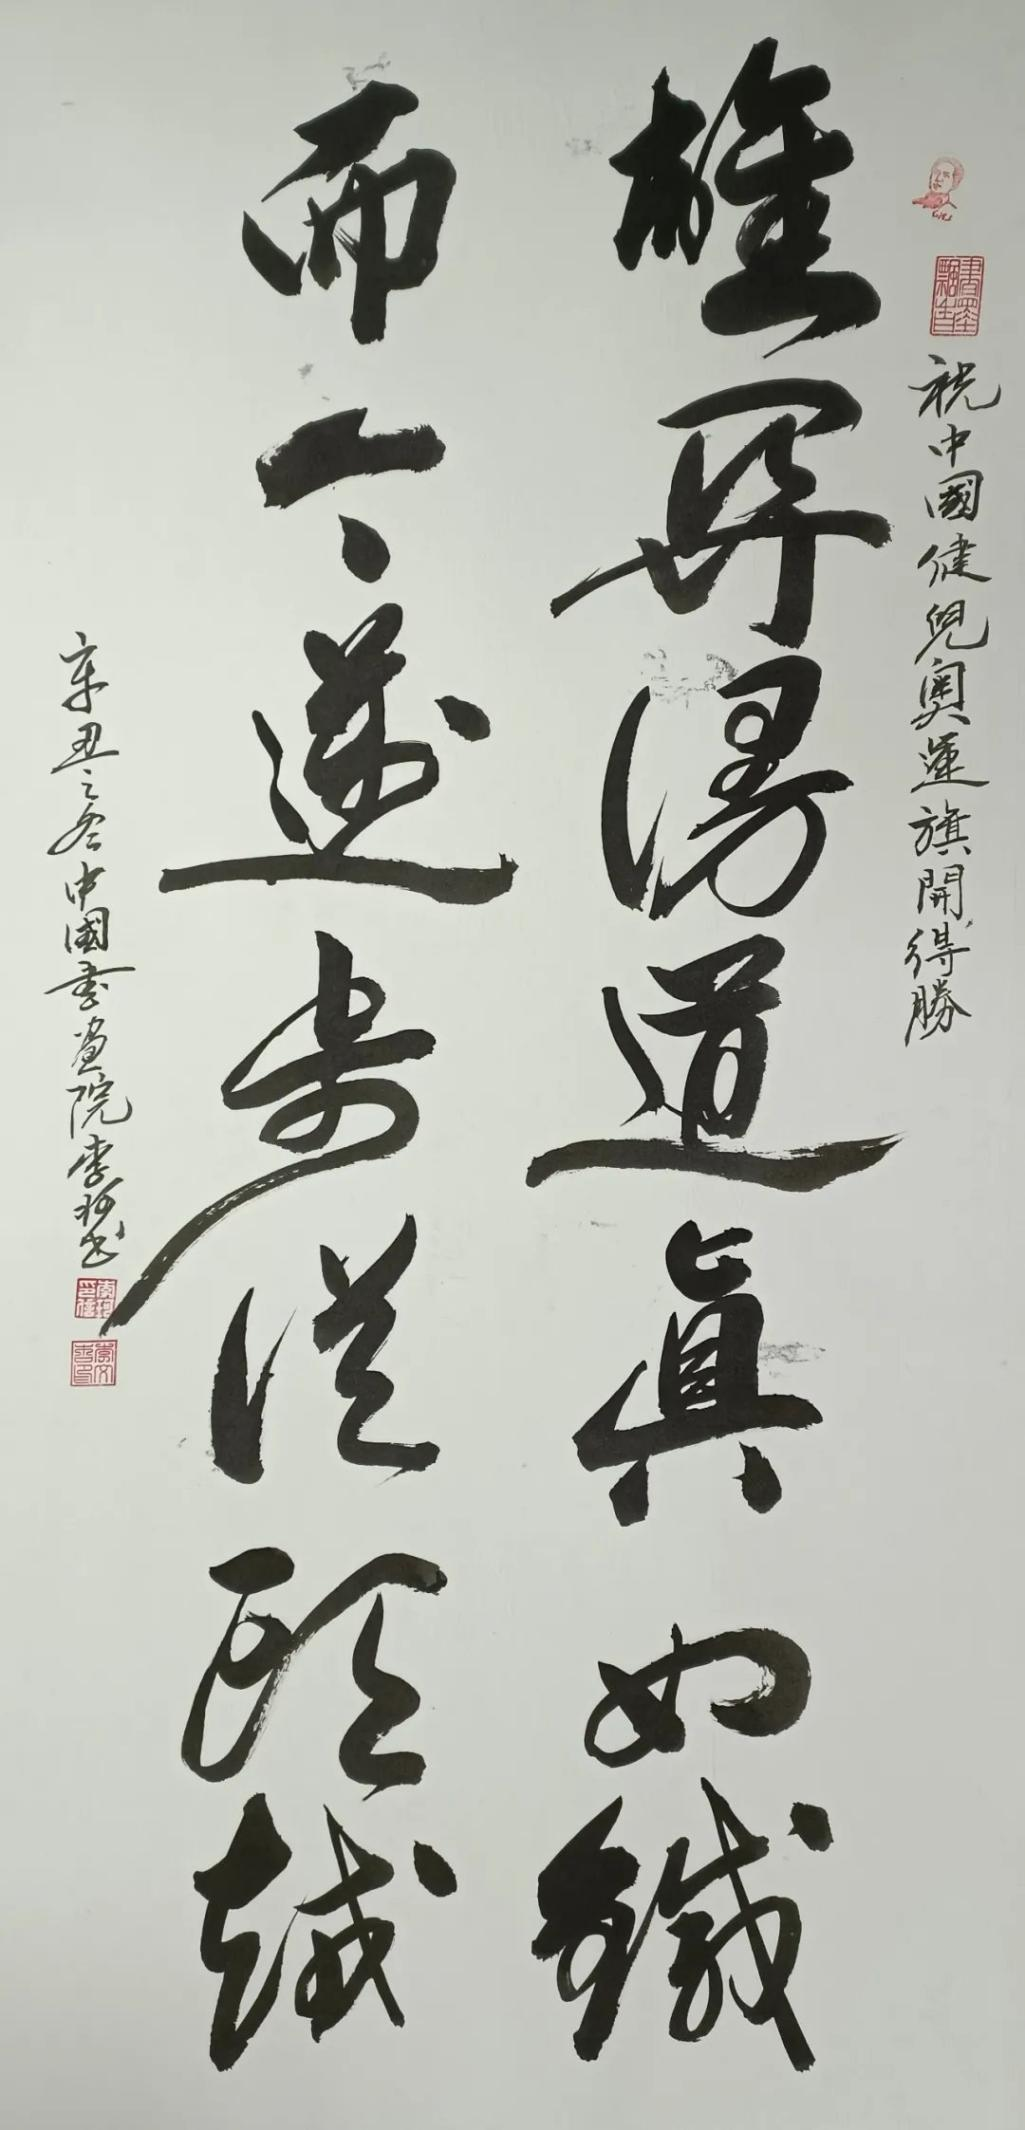 祝中國健兒奧運旗開得勝
雄関漫道真如鐵
而今邁步從頭越
辛丑之冬中國書畫院李